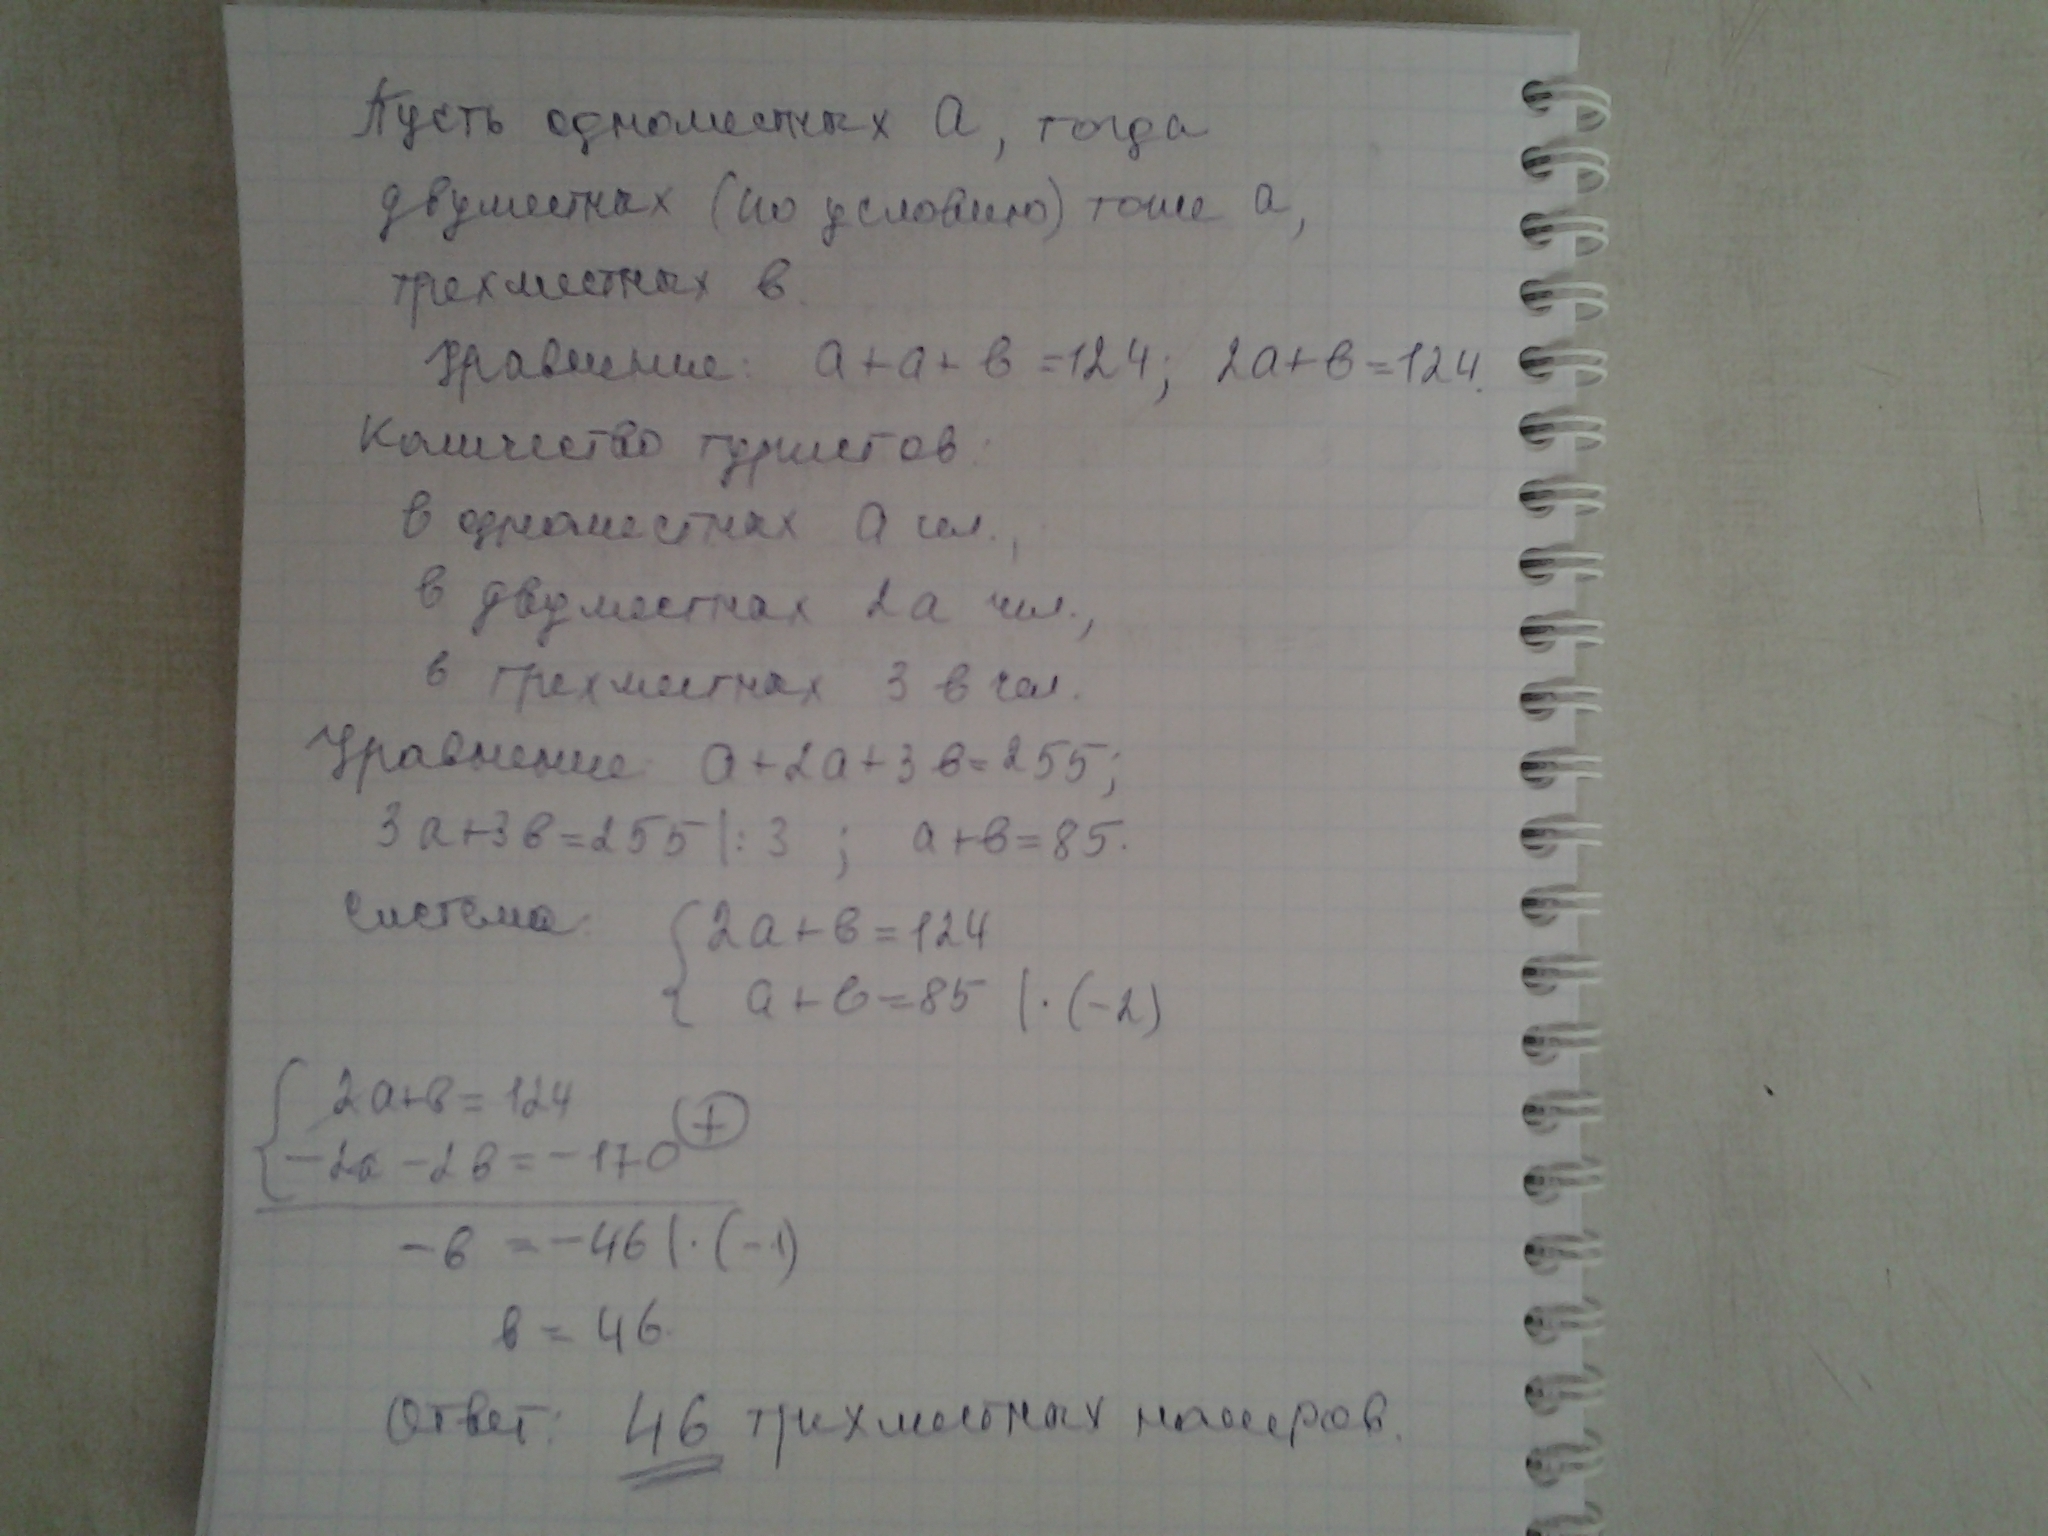 Пусть одноместных а, тогда
двуместных (по условию) тоже а,
трехместных в.
Уравнение: а+а+в=124; 2а+в=124.
Количество туристов:
в одноместных а чел.,
в двуместных 2а чел.,
в трехместных 3в чел.
Уравнение: а+2а+3в=255;
3а+3в=255|:3 ; а+в=85.
Система: {2а+в=124
а+в=85 |·(-2)
{2а+в=124
-2а-2в=-170 (+)
-в=-46|·(-1)
в=46.
Ответ: 46 трехместных номеров.